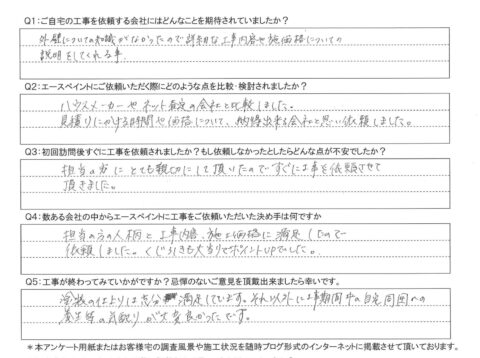 Q1:ご自宅の工事を依頼する会社にはどんなことを期待されていましたか?
外壁についての知識がなかったので詳細な工事内容や施工価格についての
説明をしてくれる事。
Q2:エースペイントにご依頼いただく際にどのような点を比較・検討されましたか?
ハウスメーカーやネット査定の会社と比較しました。
見積りにかける時間や価格について、納得出来る会社と思い依頼しました。
Q3:初回訪問後すぐに工事を依頼されましたか?もし依頼しなかったとしたらどんな点が不安でしたか?
担当の方にとても親切にして頂いたのですぐに工事を依頼させて
頂きました。
Q4:数ある会社の中からエースペイントに工事をご依頼いただいた決め手は何ですか
担当の方の人柄と工事内容、施工価格に満足したので
依頼しました。くじ引きも大当りでポイントUPでした。
Q5:工事が終わってみていかがですか?忌憚のないご意見を頂戴出来ましたら幸いです。
塗装の仕上りは充分満足しています。それ以外に工事期間中の自宅周囲への
養生等の気配りが大変良かったです。
*本アンケート用紙またはお客様宅の調査風景や施工状況を随時ブログ形式のインターネットに掲載させて頂いております。